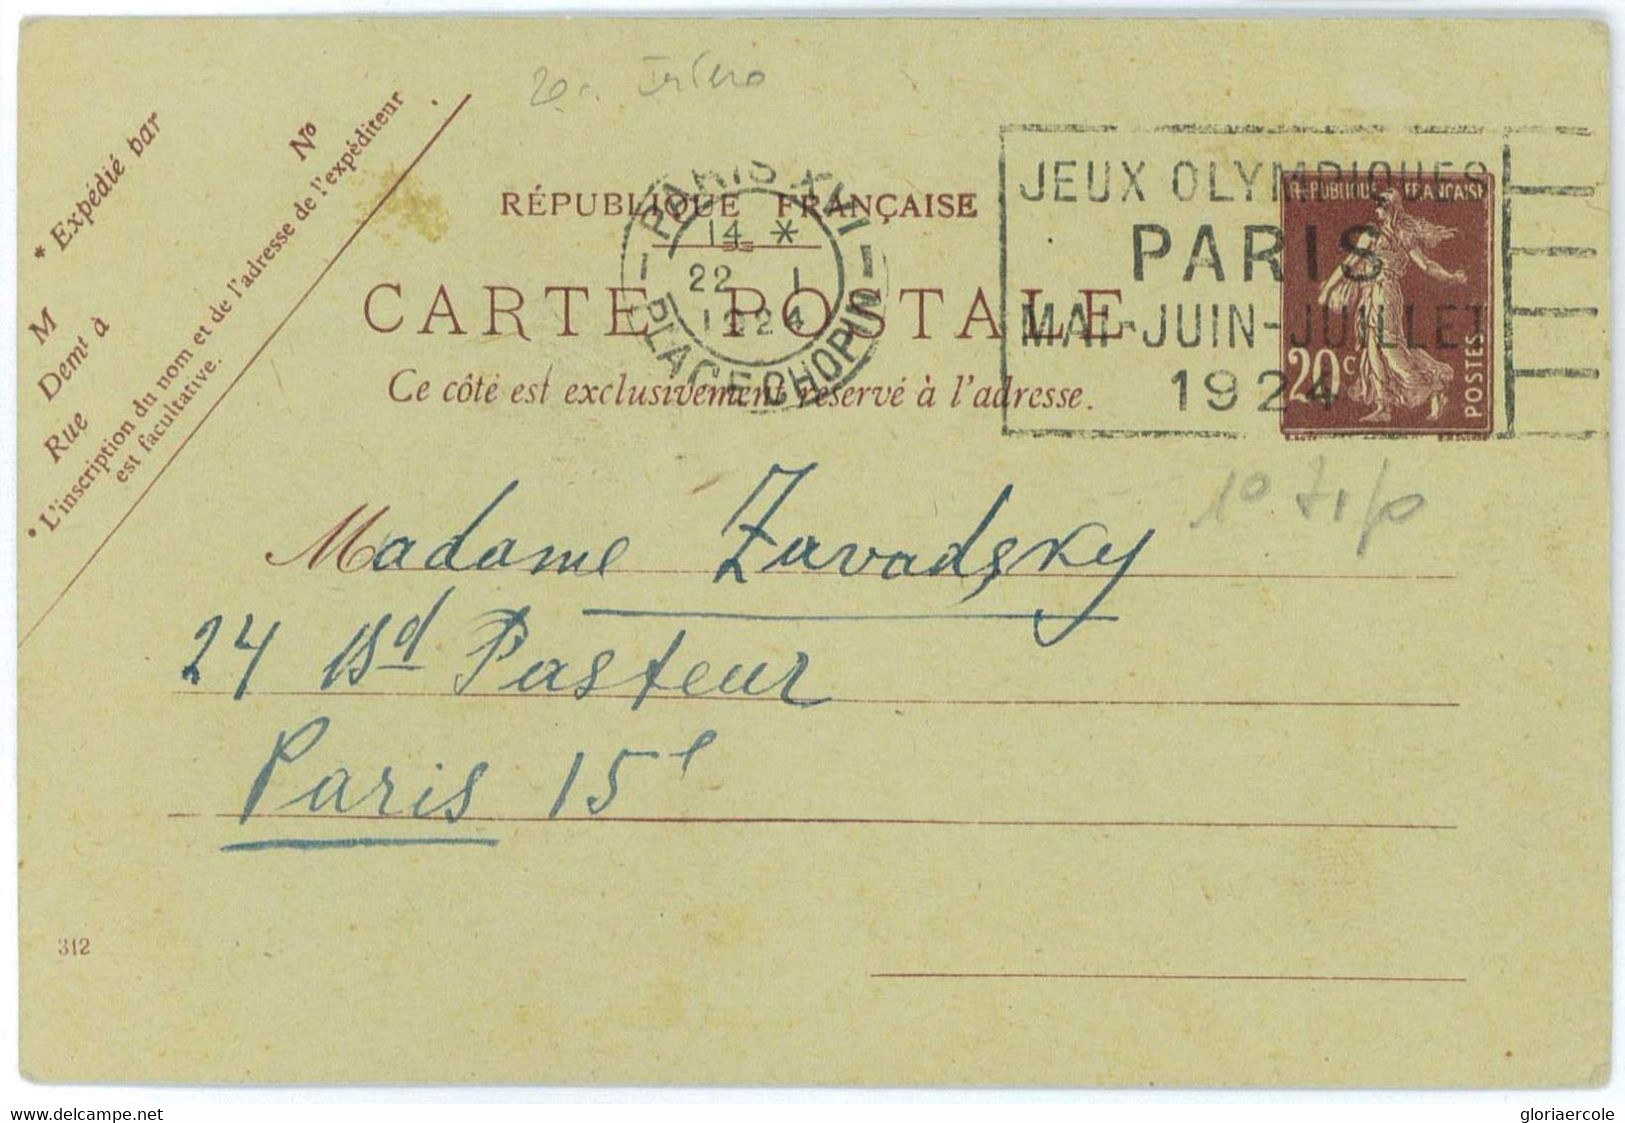 * Expédié par
M
Demt à
Rue
N°
* L'inscription du nom et de l'adresse de l'expéditeur
est facultative.
RÉPUBLIQUE FRANÇAISE
CARTE POSTALE
Ce côté est exclusivement réservé à l'adresse.
PARIS XVI
14 *
22 1
1924
PLACE CHOPIN
JEUX OLYMPIQUES
PARIS
MAI-JUIN-JUILLET
1924
REPUBLIQUE FRANÇAISE
20c
POSTES
1° tipo
Madame Zavadsky
24 Bd Pasteur
Paris 15e
312
delcampe.net
gloriaercole